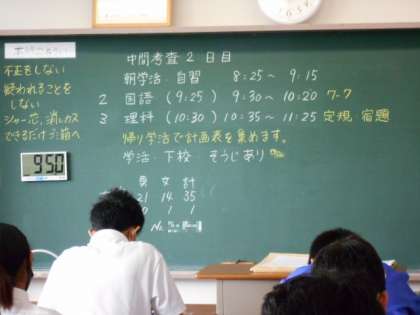 中間考査 2 日目
朝学活 自習 8:25～ 9:15
2 国語 (9:25) 9:30～10:20 ワーク
3 理科 (10:30) 10:35～11:25 定規 宿題
帰り学活で計画表を集めます。
学活・下校・そうじあり
男 女 計
21 14 35
0 1 1
不正をしない
疑われることを
しない
シャー芯、消しカス
できるだけゴミ箱へ
950